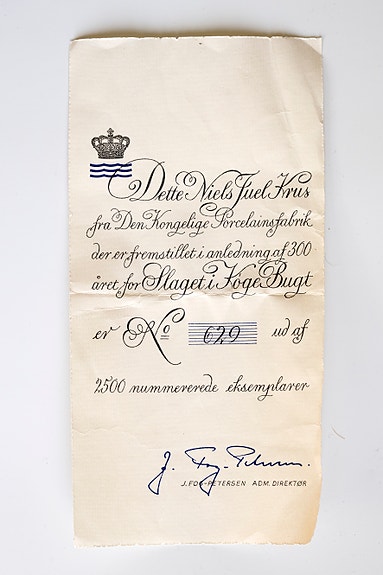 Dette Niels Juel Krus
fra Den Kongelige Porcelainsfabrik
der er fremstillet i anledning af 300
året for Slaget i Køge Bugt
er No 629 ud af
2500 nummererede eksemplarer
J. Fog-Petersen.
J. FOG-PETERSEN ADM. DIREKTØR